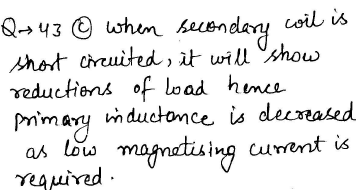 Q→43 Ⓒ when secondary coil is
short circuited, it will show
reductions of load hence
primary inductance is decreased
as low magnetising current is
required.